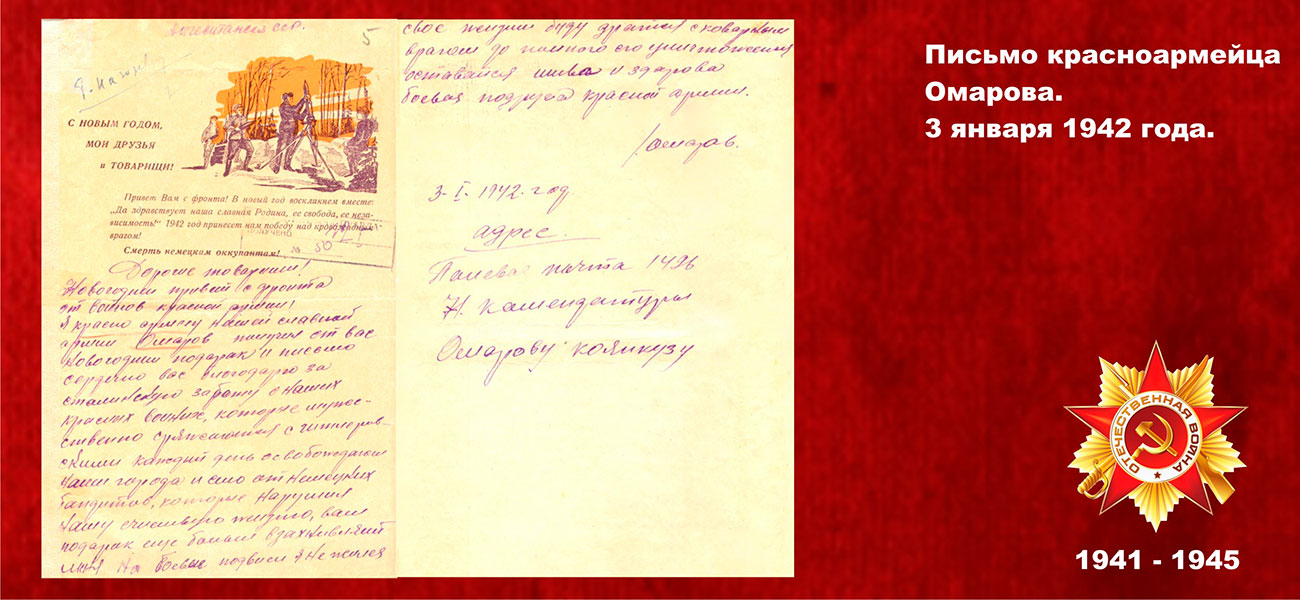 5
С НОВЫМ ГОДОМ,
МОИ ДРУЗЬЯ
и ТОВАРИЩИ!
Привет Вам с фронта! В новый год воскликнем вместе:
„Да здравствует наша славная Родина, ее свобода, ее неза-
висимость!“ 1942 год принесет нам победу над кровожадным
врагом!
Смерть немецким оккупантам!
№ 50
Дороги товарищи!
Новогодни привет с фронта
от воинов красной армии!
Я красно армеец нашей славной
армии Омаров получил от вас
новогодни подарак и письмо
сердечно вас благодарю за
сталинскую заботу о наших
красных воинах, которые
с гитлеров-
скими каждый день освобождаем
наши города и от немецких
бандитов, которые нарушил
нашу жизню, ваш
подарак еще больши
меня на боевые подвиги я не жалея
свое жизни буду драться с коварным
врагом до полного его уничтожения
оставайся жива и здарова
боевая подруга красной армии.
/Омаров.
3-I-1942. год
адрес.
Палевая почта 1426
Н. камендатуры
Омарову
Письмо красноармейца
Омарова.
3 января 1942 года.
ОТЕЧЕСТВЕННАЯ ВОЙНА
1941 - 1945